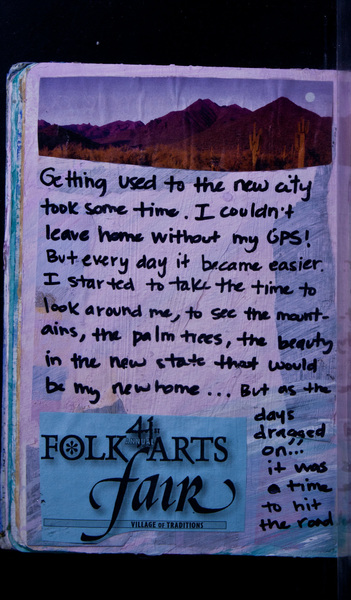 Getting used to the new city
took some time. I couldn't
leave home without my GPS!
But every day it became easier.
I started to take the time to
look around me, to see the mount-
ains, the palm trees, the beauty
in the new state that would
be my new home... But as the
days
dragged
on...
it was
a time
to hit
the road
41ST
ANNUAL
FOLK ARTS
fair
VILLAGE OF TRADITIONS